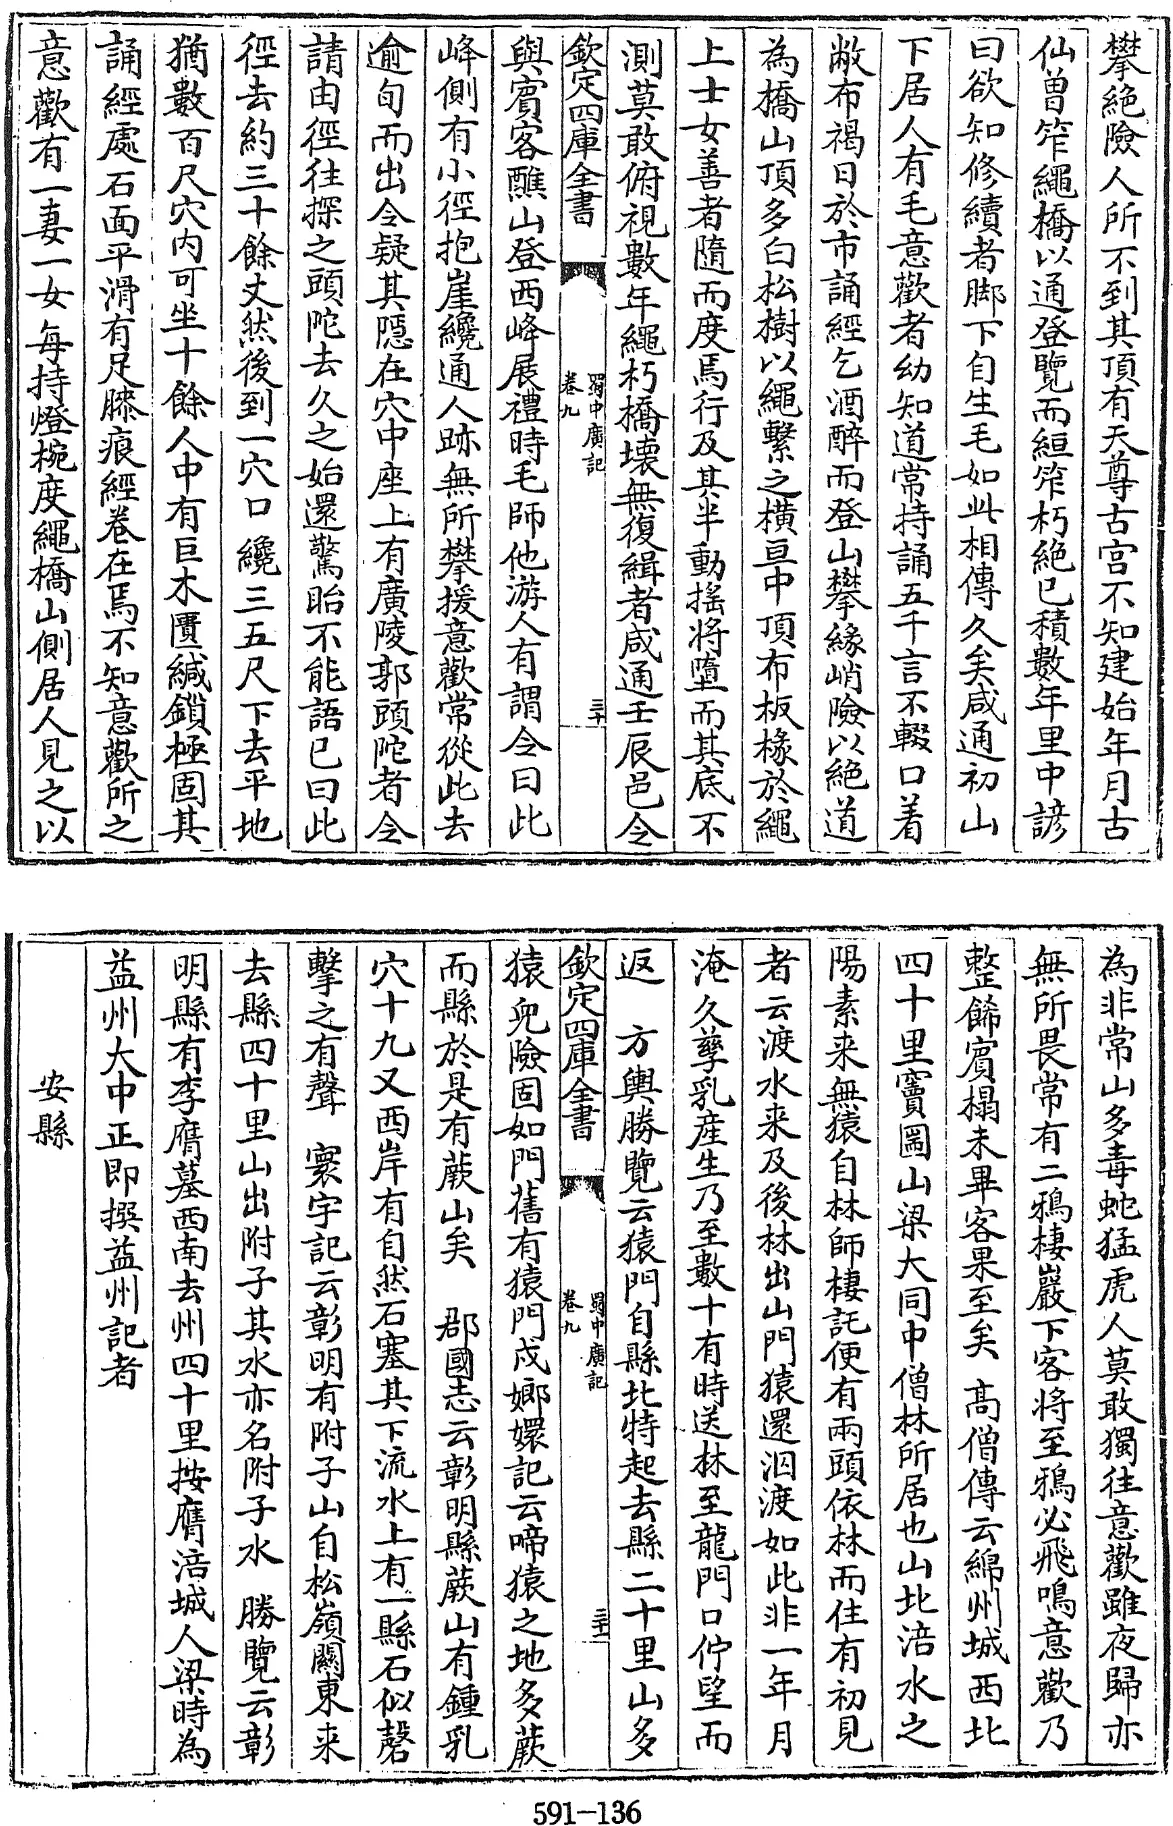 攀絶險人所不到其頂有天尊古宫不知建始年月古
仙曽笮繩橋以通登覽而縆笮朽絶已積數年里中諺
曰欲知修續者脚下自生毛如此相傳久矣咸通初山
下居人有毛意歡者幼知道常持誦五千言不輟口着
敝布褐日於市誦經乞酒醉而登山攀緣峭險以絶道
為橋山頂多白松樹以繩繫之橫亘中頂布板椽於繩
上士女善者隨而度焉行及其半動搖將墮而其底不
測莫敢俯視數年繩朽橋壊無復緝者咸通壬辰邑令
欽定四庫全書
蜀中廣記
卷九
三十
與賓客醮山登西峰展禮時毛師他游人有謂令曰此
峰側有小徑抱崖纔通人跡無所攀援意歡常從此去
逾旬而出令疑其隠在穴中座上有廣陵郭頭陀者令
請由徑往探之頭陀去久之始還驚眙不能語已曰此
徑去約三十餘丈然後到一穴口纔三五尺下去平地
猶數百尺穴内可坐十餘人中有巨木匱緘鎖極固其
誦經處石面平滑有足膝痕經卷在焉不知意歡所之
意歡有一妻一女每持燈椀度繩橋山側居人見之以
為非常山多毒蛇猛虎人莫敢獨往意歡雖夜歸亦
無所畏常有二鴉棲巖下客將至鴉必飛鳴意歡乃
整飾賓榻未畢客果至矣　髙僧傳云綿州城西北
四十里竇圌山梁大同中僧林所居也山北涪水之
陽素来無猿自林師棲託便有兩頭依林而住有初見
者云渡水来及後林出山門猿還泅渡如此非一年月
淹久孳乳産生乃至數十有時送林至龍門口佇望而
返　方輿勝覽云猿門自縣北特起去縣二十里山多
欽定四庫全書
蜀中廣記
卷九
三十一
猿皃險固如門舊有猿門戍嫏嬛記云啼猿之地多蕨
而縣於是有蕨山矣　郡國志云彰明縣蕨山有鍾乳
穴十九又西岸有自然石塞其下流水上有一縣石似磬
擊之有聲　寰宇記云彰明有附子山自松嶺關東来
去縣四十里山出附子其水亦名附子水　勝覽云彰
明縣有李膺墓西南去州四十里按膺涪城人梁時為
益州大中正即撰益州記者
安縣
591-136